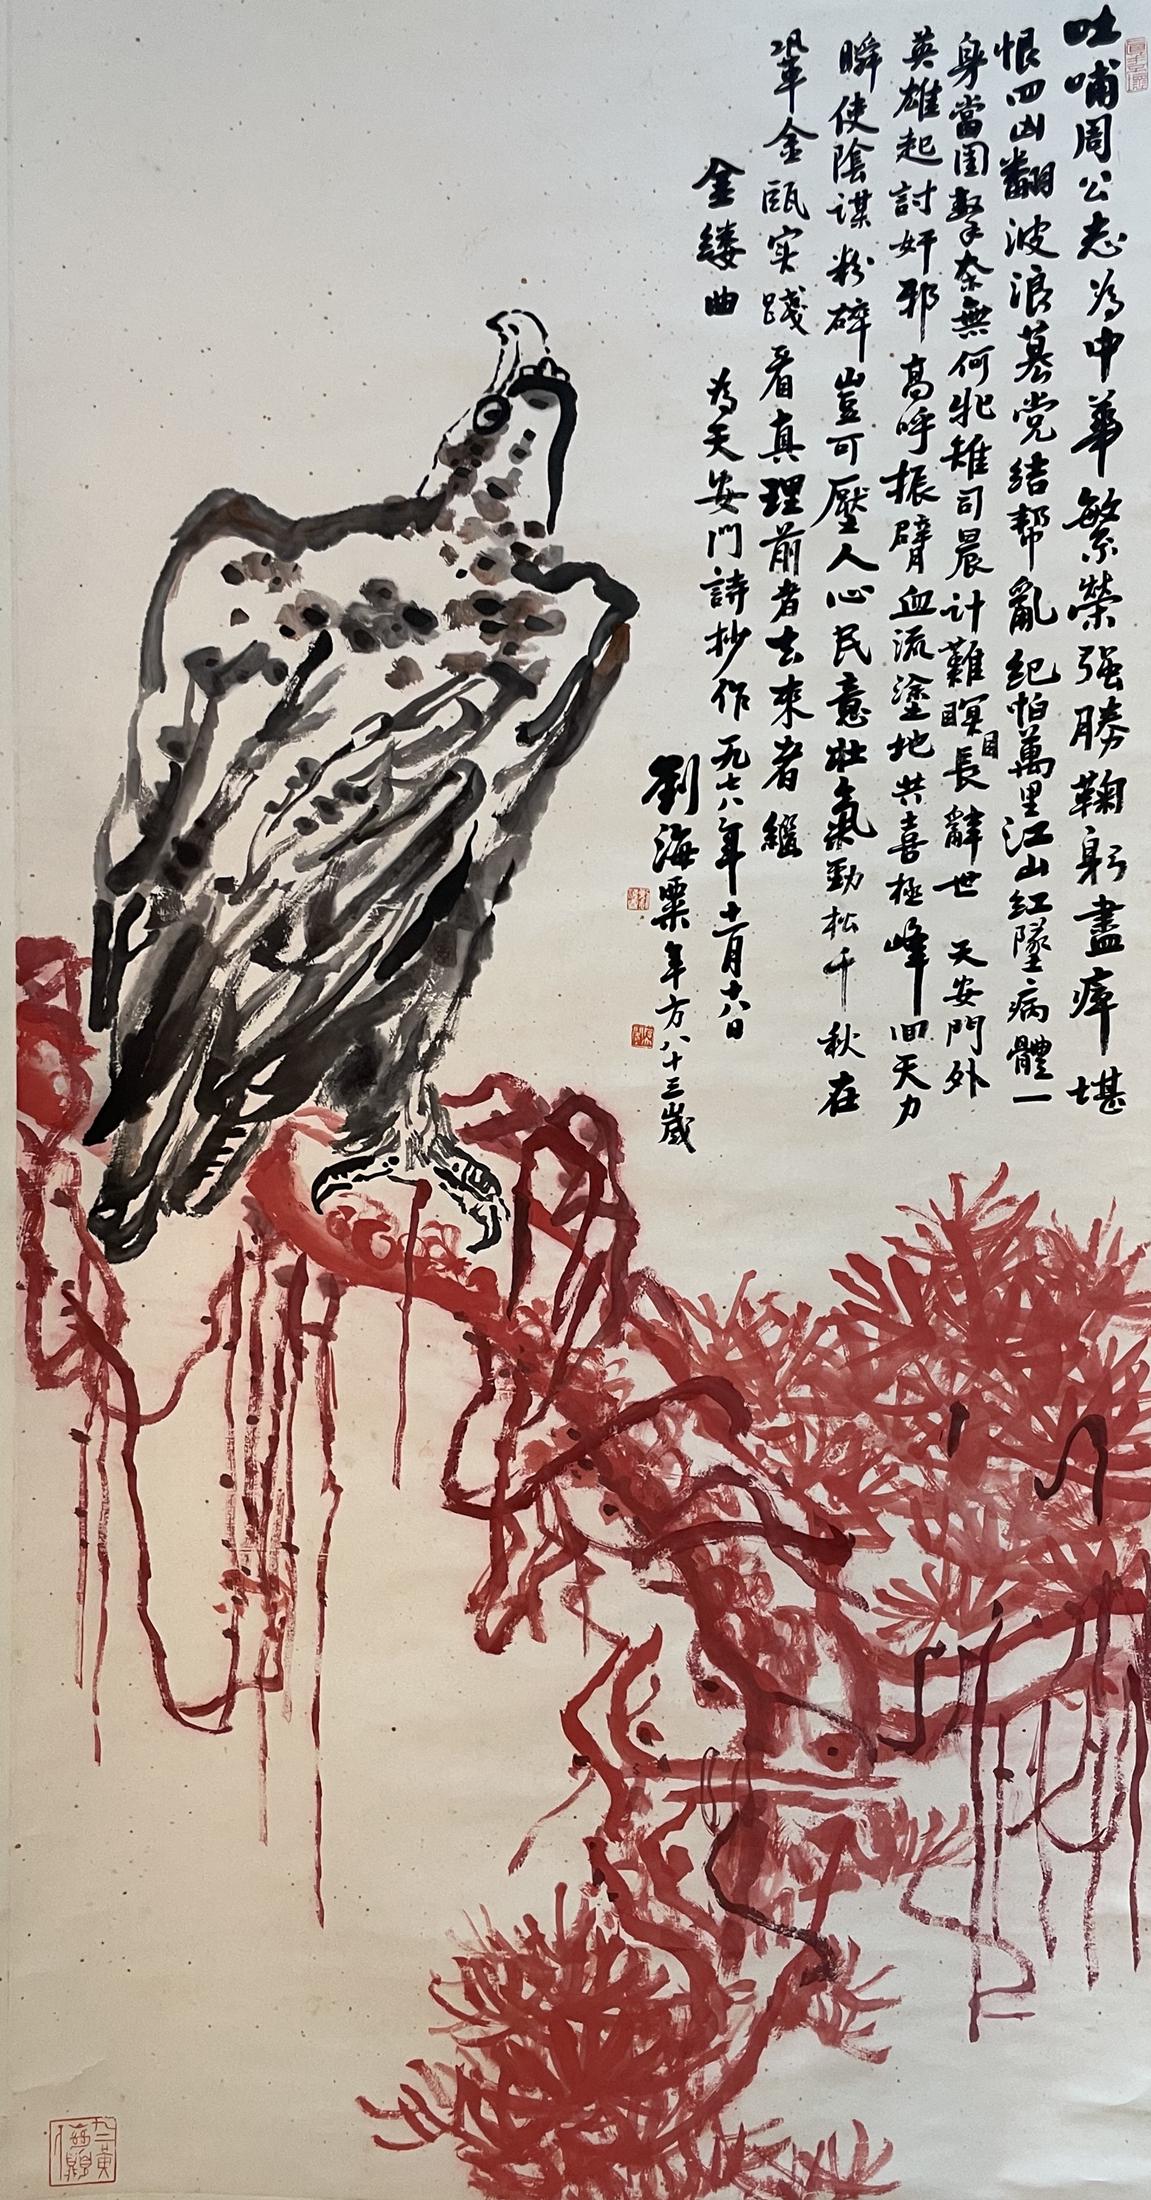 吐哺周公志為中華繁榮强勝鞠躬盡瘁堪
恨四凶翻波浪墓党结帮亂纪怕萬里江山红墜病體一
身當圍擊奈無何牝雉司晨计難瞑目長辭世 天安門外
英雄起討奸邪高呼振臂血流塗地共喜極峰回天力
瞬使陰谋粉碎豈可壓人心民意壮氣勁松千秋在
鞏金甌实踐看真理前者去来者繼
金缕曲 為天安门詩抄作 一九七八年十一月十八日
劉海粟年方八十三歲